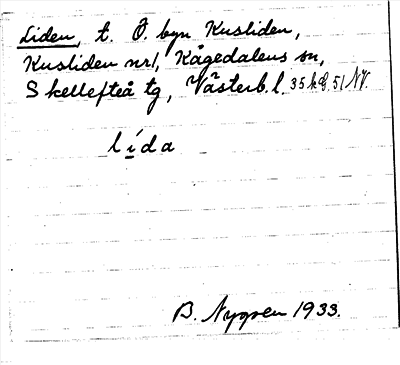 Liden, t. Ö. byn Kusliden,
Kusliden nr 1, Kågedalens sn,
Skellefteå tg, Västerb. l. 35 k G. 51 NV.
lída
B. Nygren 1933.